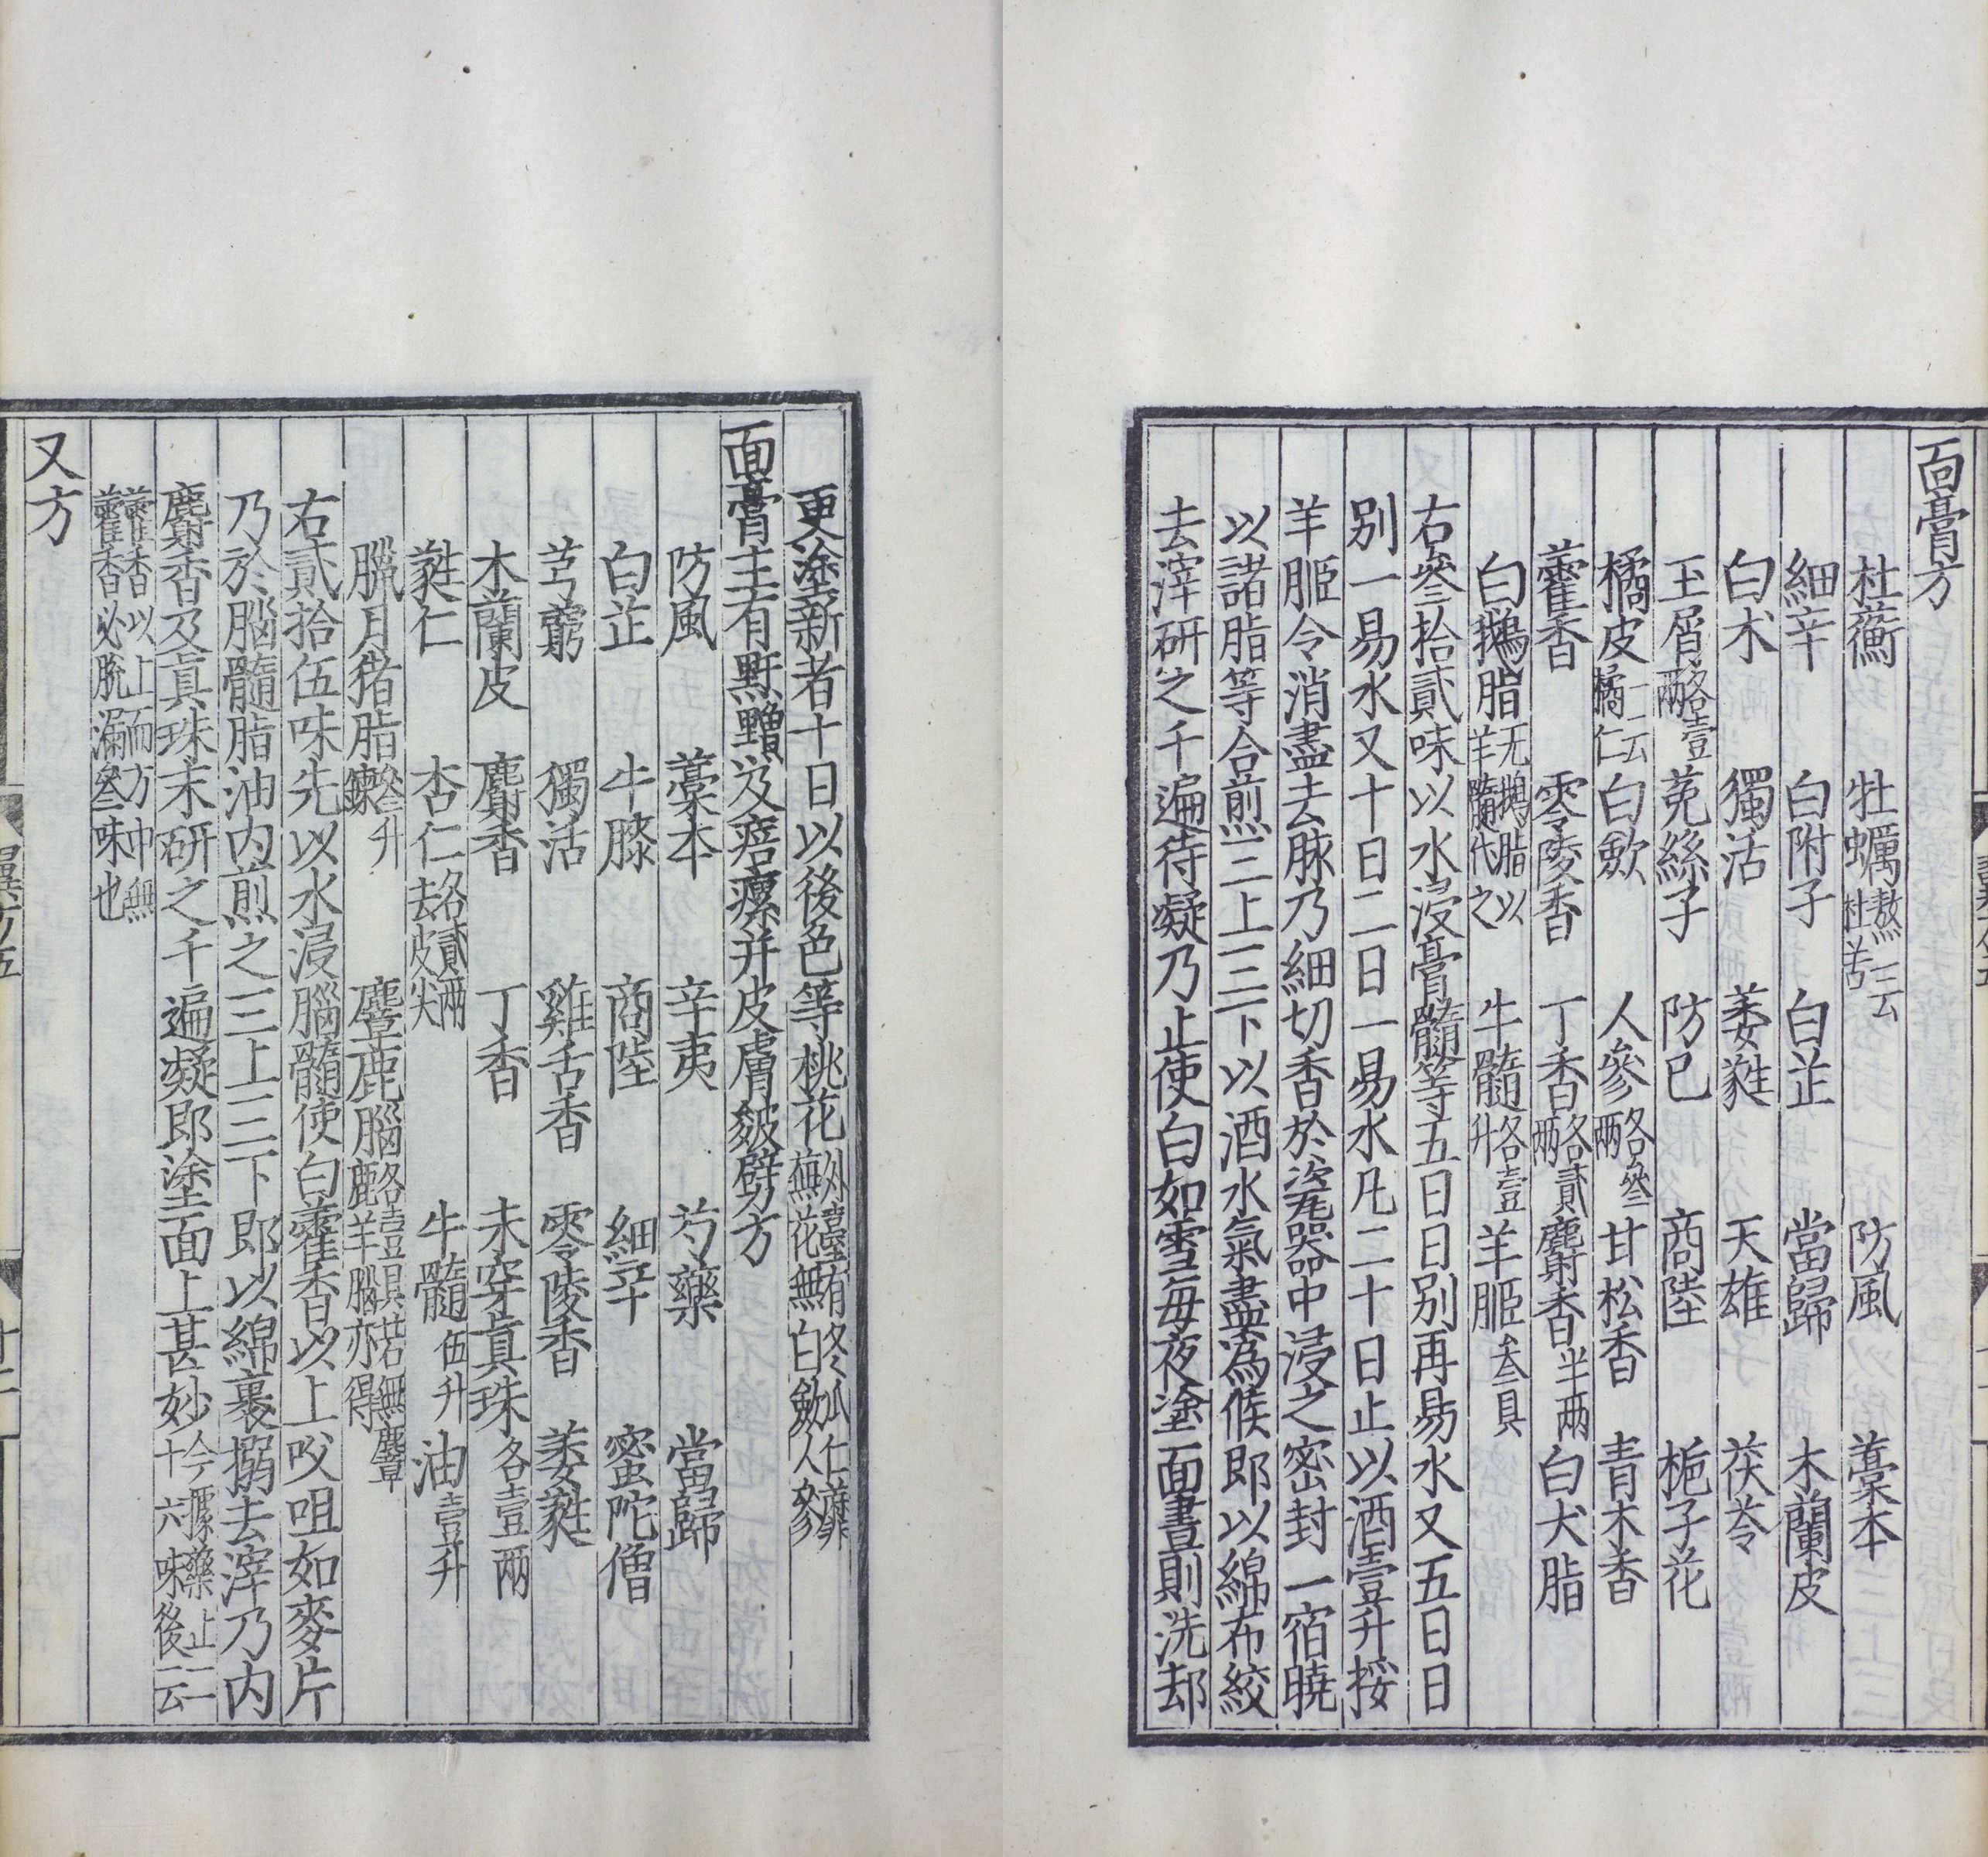 面膏方
杜蘅 牡蠣熬一云杜若 防風 藁本
細辛 白附子 白芷 當歸 木蘭皮
白朮 獨活 萎蕤 天雄 茯苓
玉屑各壹兩 菟絲子 防已 商陸 梔子花
橘皮一云橘仁 白歛 人參各叁兩 甘松香 青木香
藿香 零陵香 丁香各貳兩 麝香半兩 白犬脂
白鵝脂无鵝脂以羊髓代之 牛髓各壹升 羊䏰叁具
右叁拾貳味以水浸膏髓等五日日別再易水又五日日
別一易水又十日二日一易水凡二十日止以酒壹升挼
羊䏰令消盡去脉乃細切香於瓷器中浸之密封一宿曉
以諸脂等合煎三上三下以酒水氣盡為候即以綿布絞
去滓研之千遍待凝乃止使白如雪每夜塗面晝則洗却
更塗新者十日以後色等桃花外臺有冬瓜仁蘼蕪花無白歛人參
面膏主有䵟䵳及痦瘰并皮膚皴劈方
防風 藁本 辛夷 芍藥 當歸
白芷 牛膝 商陸 細辛 蜜陀僧
芎藭 獨活 雞舌香 零陵香 萎蕤
木蘭皮 麝香 丁香 未穿真珠各壹兩
蕤仁 杏仁各貳兩去皮尖 牛髓伍升 油壹升
臘月猪脂叁升鍊 麞鹿腦各壹具若無麞鹿羊腦亦得
右貳拾伍味先以水浸腦髓使白藿香以上㕮咀如麥片
乃於腦髓脂油内煎之三上三下即以綿裹搦去滓乃内
麝香及真珠末研之千遍凝即塗面上甚妙今據藥止二十六味後云
藿香以上而方中無藿香必脫漏叁味也
又方